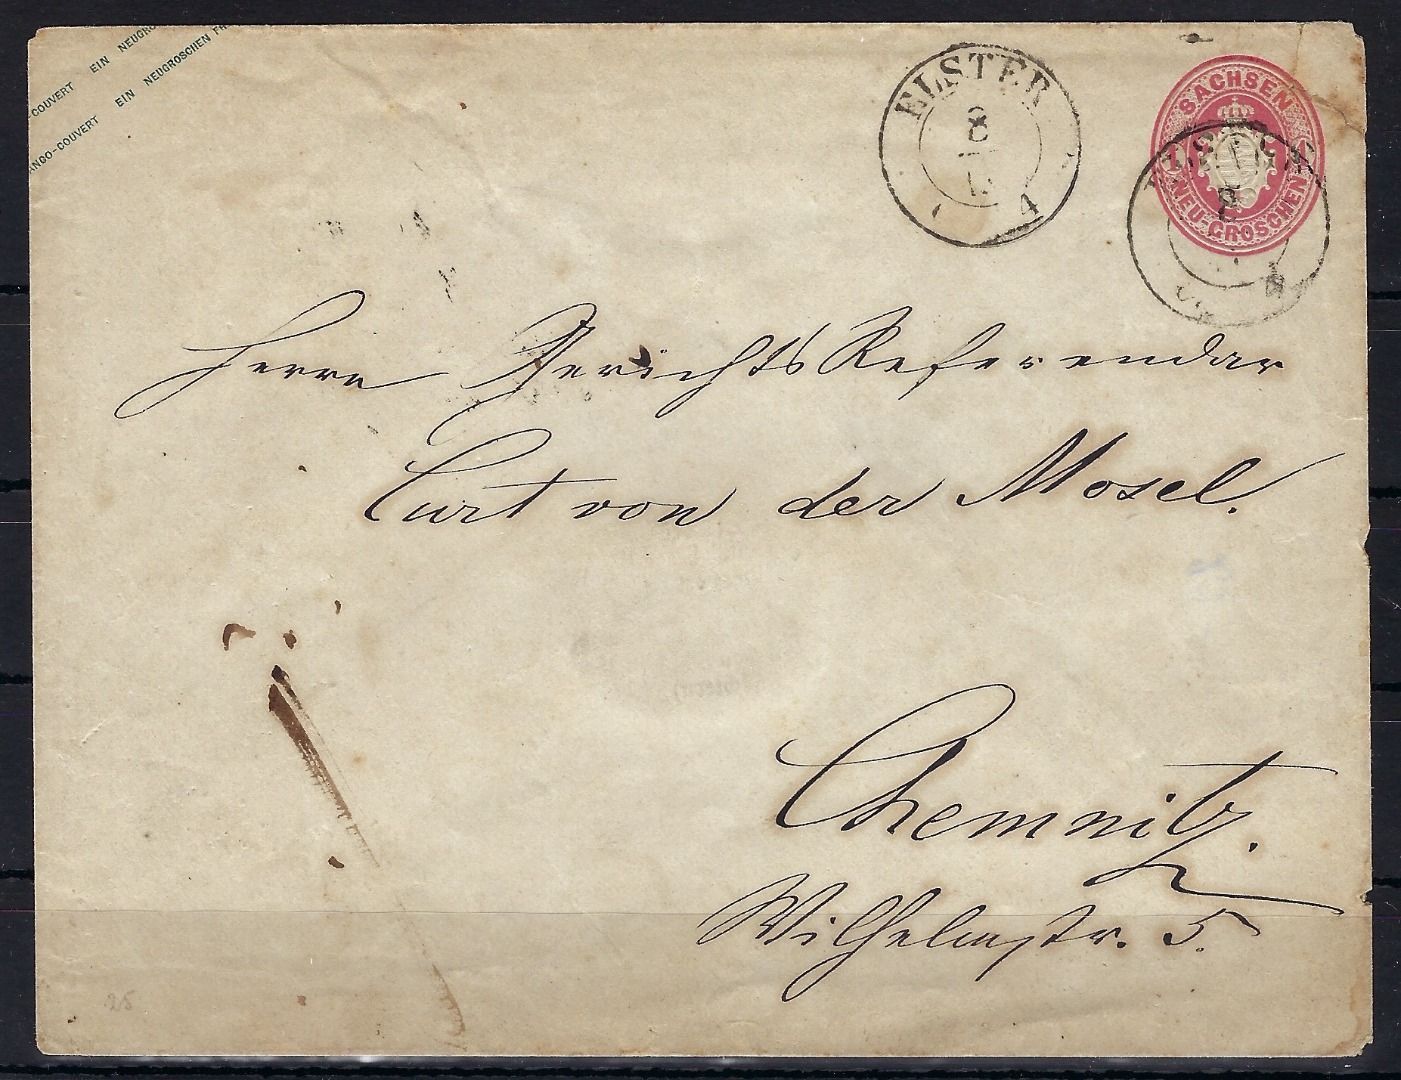 COUVERT EIN NEUGRO
ANCO-COUVERT EIN NEUGROSCHEN FR
ELSTER
8
4
SACHSEN
1
NEU-GROSCHEN
8
Herrn Gerichts Referendar
Curt von der Mosel.
Chemnitz.
Wilhelmstr. 5.
25